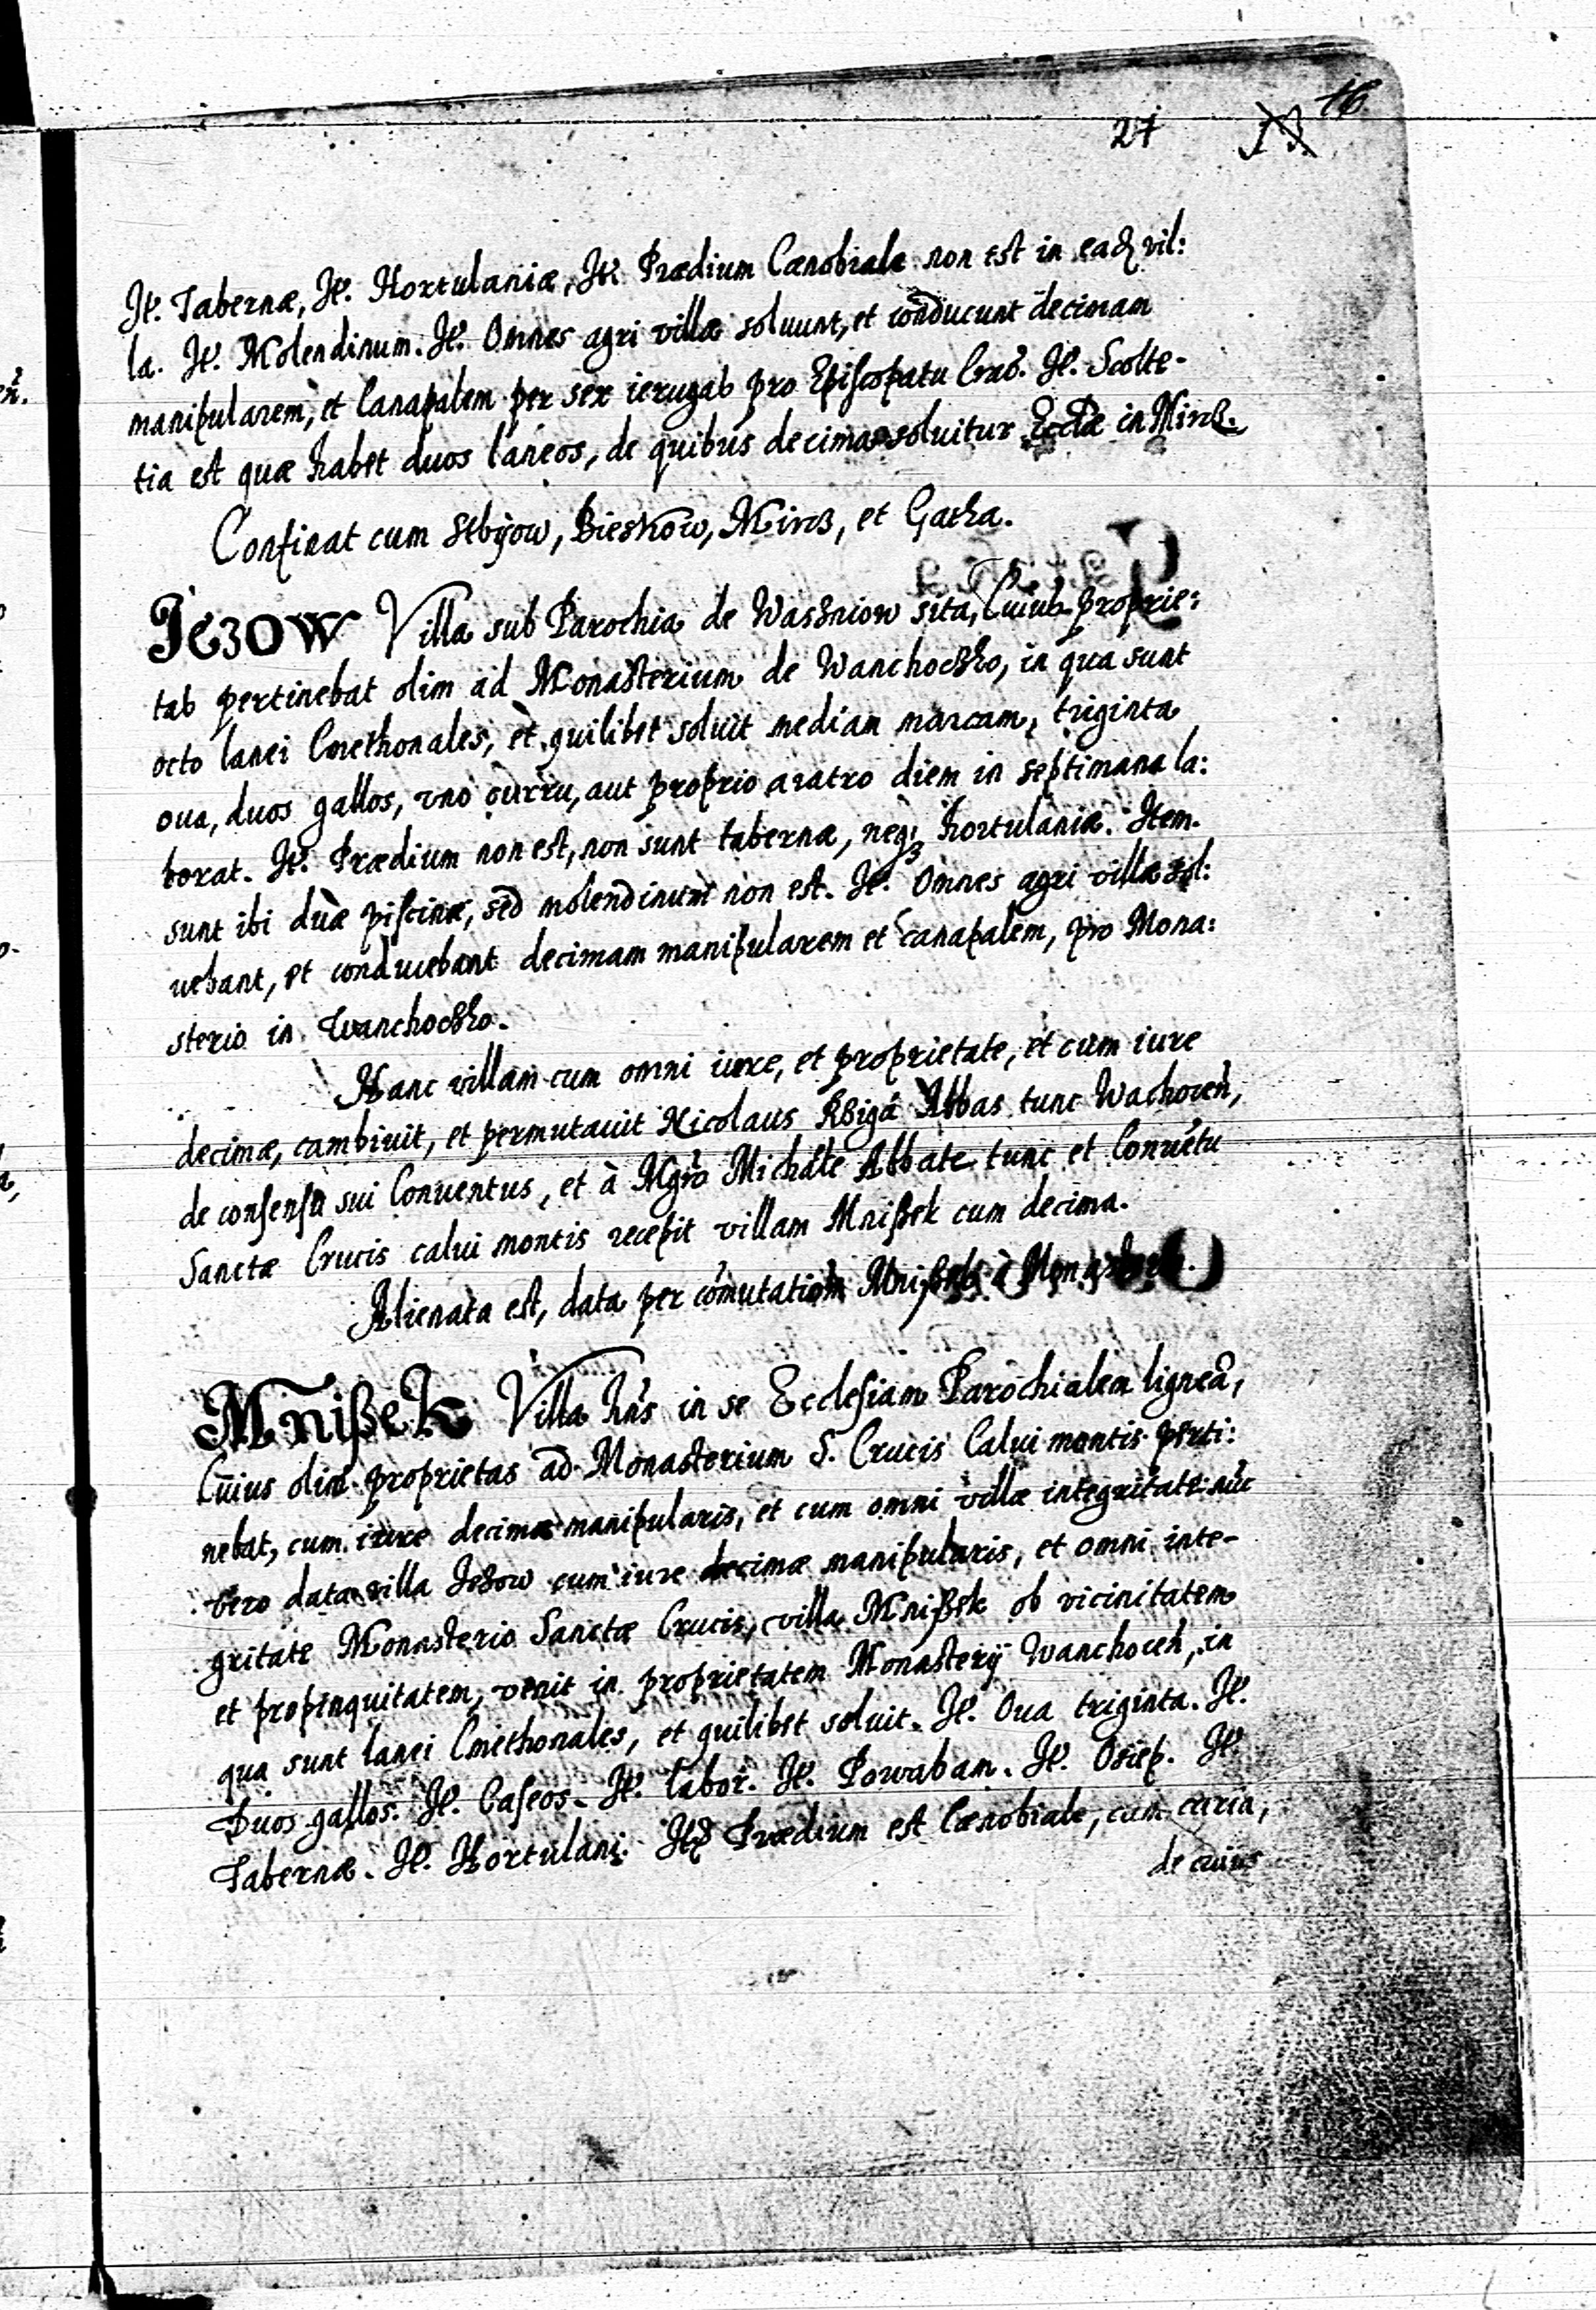 27 13. 16
Jt. Tabernæ, Jt. Hortulaniæ, Jt. Prædium Cænobiale non est in eadē vil:
la. Jt. Molendinum. Jt. Omnes agri villæ soluunt, et conducunt decimam
manipularem, et Canapalem per sex ierugas pro Episcopatu Crac. Jt. Scolte-
tia est quæ habet duos laneos, de quibus decima soluitur Ecclæ in Mircz.
Confinat cum Stbijow, Bieskow, Mircz, et Gacka.
Jezow Villa sub Parochia de Waszniow sita, Cuius proprie:
tas pertinebat olim ad Monasterium de Wanchoczko, in qua sunt
octo lanei Cmethonales, et quilibet soluit mediam marcam, triginta
oua, duos gallos, vno curru, aut proprio aratro diem in septimana la:
borat. Jt. Prædium non est, non sunt tabernæ, neqȝ hortulaniæ. Jtem.
sunt ibi duæ piscinæ, sed molendinum non est. Jt. Omnes agri villæ sol:
uebant, et conducebant decimam manipularem et canapalem, pro Mona:
sterio in Wanchoczko.
Hanc villam cum omni iure, et proprietate, et cum iure
decimæ, cambiuit, et permutauit Nicolaus Abbas tunc Wachoceń,
de consensu sui Conuentus, et à Mgrō Michaële Abbate tunc et Conuētu
Sanctæ Crucis calui montis recepit villam Mnißek cum decima.
Alienata est, data per cōmutationē
Mnißek Villa hn̄s in se Ecclesiam Parochialem ligneā,
Cuius olim proprietas ad Monasterium S. Crucis Calui montis perti:
nebat, cum iure decimæ manipularis, et cum omni villæ integritate: nūc
vero data villa Jezow cum iure decimæ manipularis, et omni inte-
gritate Monasterio Sanctæ Crucis, villa Mnißek ob vicinitatem
et propinquitatem, venit in proprietatem Monasterij Wanchoceń, in
qua sunt lanei Cmethonales, et quilibet soluit. Jt. Oua triginta. Jt.
Duos gallos. Jt. Caseos. Jt. labor. Jt. Powabam. Jt. Osiep. Jt.
Tabernæ. Jt. Hortulani. Jtē Prædium est Cænobiale, cum curia,
de cuius